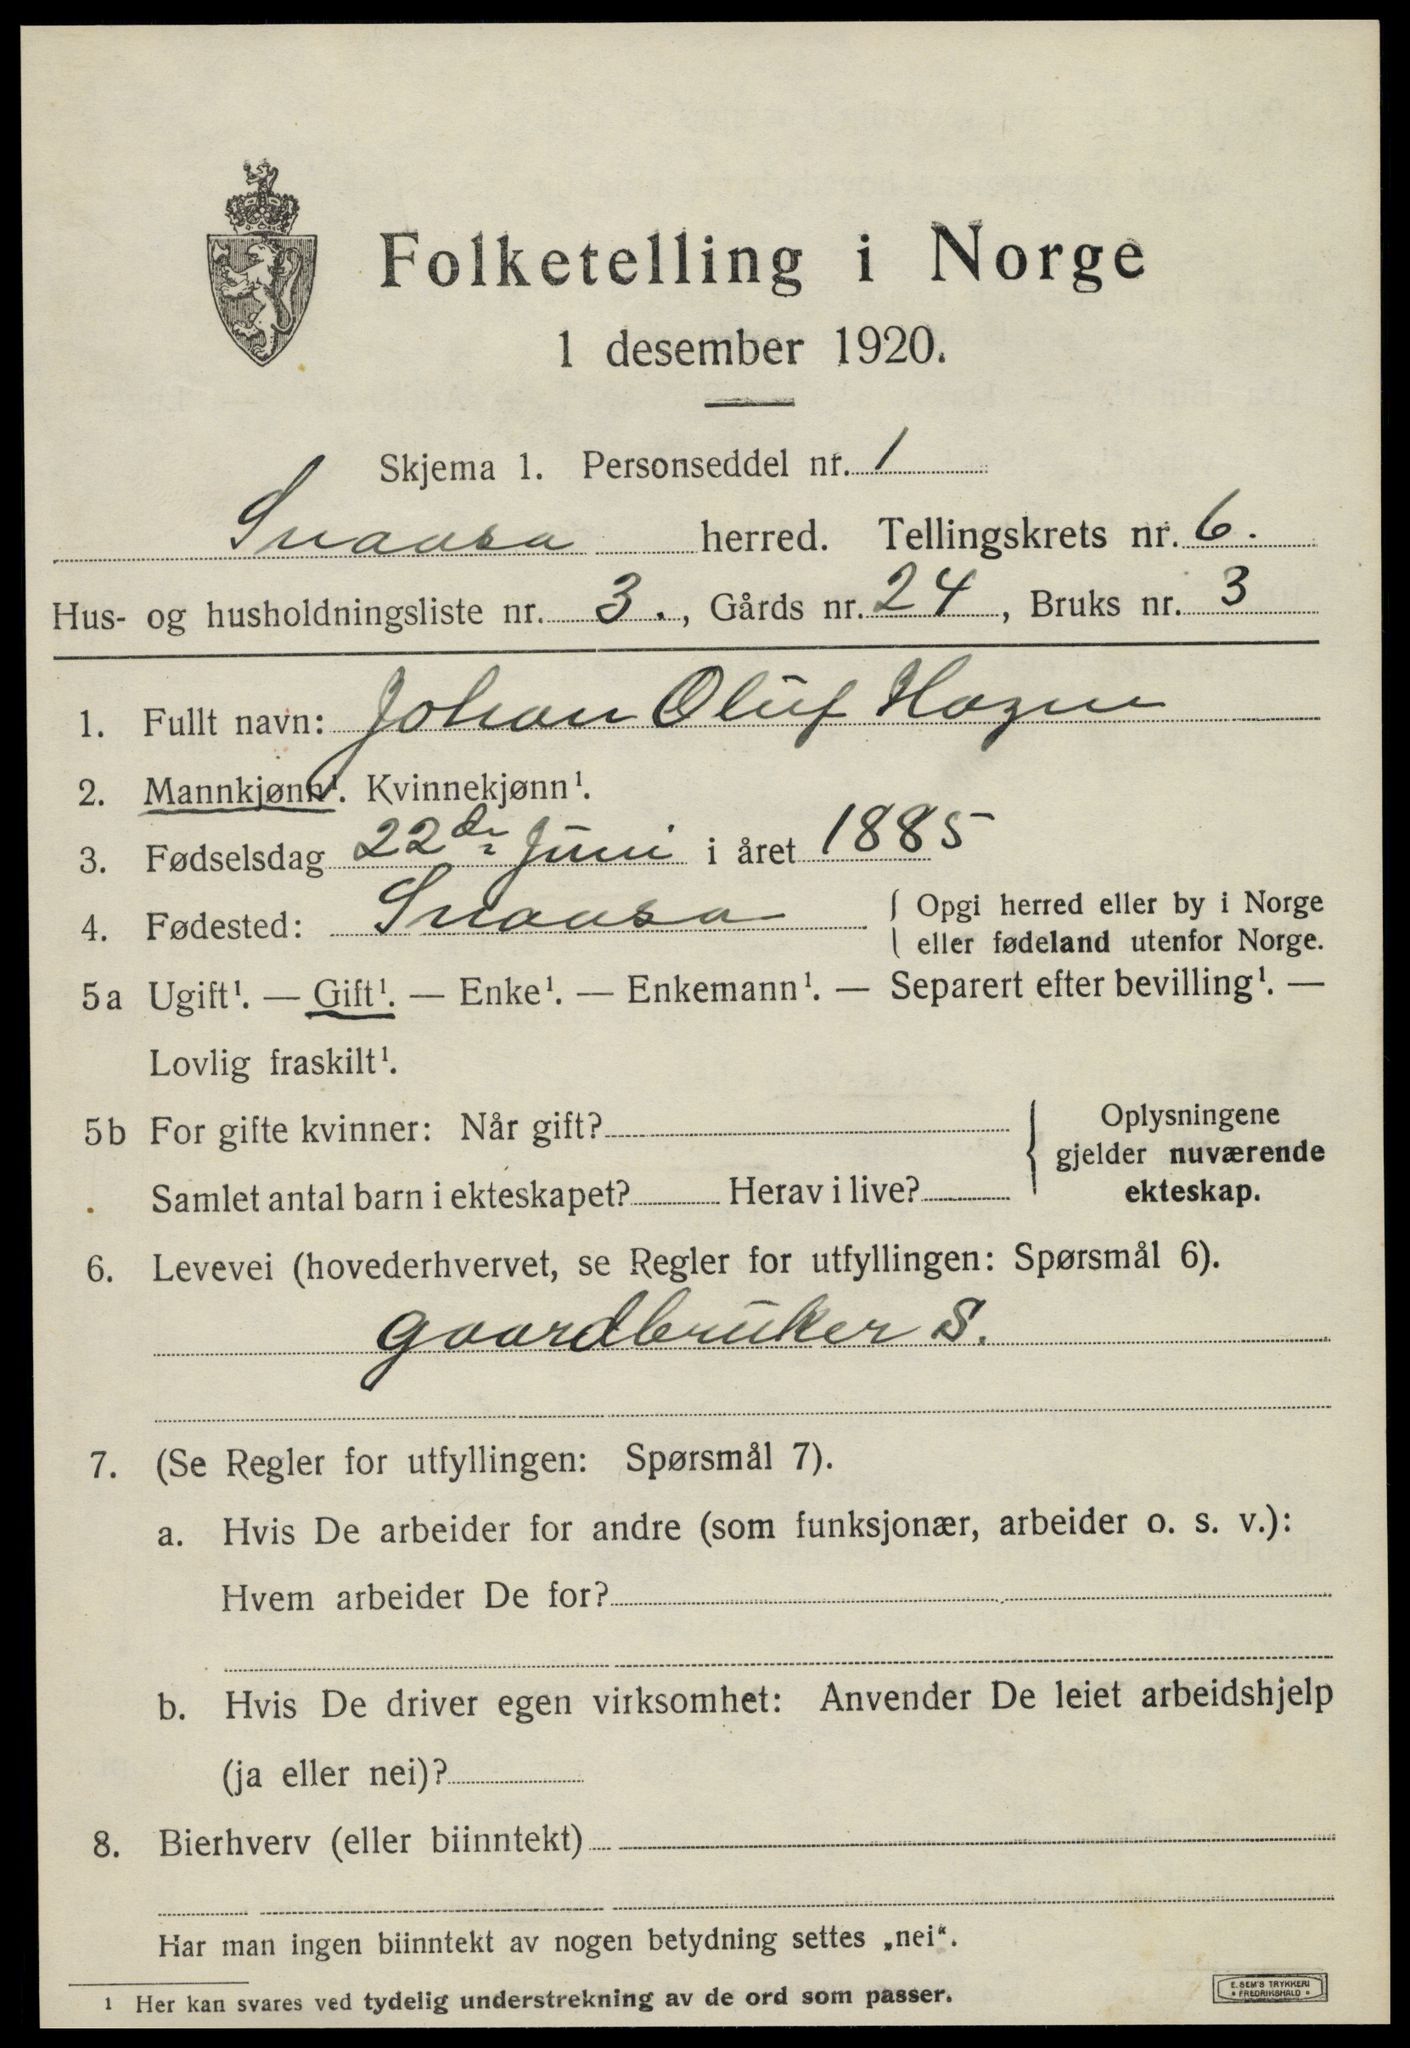 Folketelling i Norge
1 desember 1920.
Skjema 1. Personseddel nr. 1
Snaasa herred. Tellingskrets nr. 6.
Hus- og husholdningsliste nr. 3., Gårds nr. 24, Bruks nr. 3
1. Fullt navn: Johan Oluf Hagen
2. Mannkjønn¹. Kvinnekjønn¹.
3. Fødselsdag 22de Juni i året 1885
4. Fødested: Snaasa { Opgi herred eller by i Norge
eller fødeland utenfor Norge.
5a Ugift¹. — Gift¹. — Enke¹. — Enkemann¹. — Separert efter bevilling¹. —
Lovlig fraskilt¹.
5b For gifte kvinner: Når gift? { Oplysningene
gjelder nuværende
Samlet antal barn i ekteskapet? Herav i live? ekteskap.
6. Levevei (hovederhvervet, se Regler for utfyllingen: Spørsmål 6).
gaardbruker S.
7. (Se Regler for utfyllingen: Spørsmål 7).
a. Hvis De arbeider for andre (som funksjonær, arbeider o. s. v.):
Hvem arbeider De for?
b. Hvis De driver egen virksomhet: Anvender De leiet arbeidshjelp
(ja eller nei)?
8. Bierhverv (eller biinntekt)
Har man ingen biinntekt av nogen betydning settes „nei“.
1 Her kan svares ved tydelig understrekning av de ord som passer.
E. SEM'S TRYKKERI
• FREDRIKSHALD •